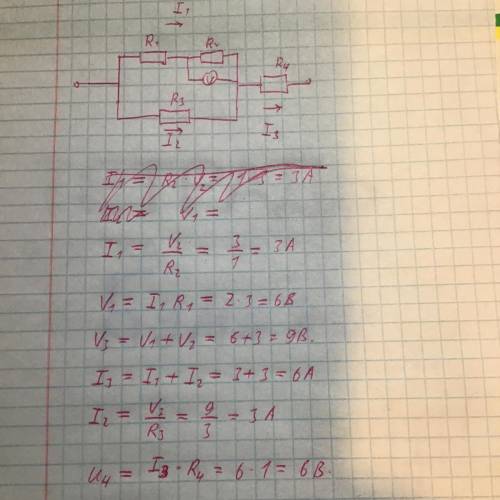 I₁
R₁ R₂
V
R₄
R₃
I₂
I₃
= 3A
V₁ =
I₁ = V₂/R₂ = 3/1 = 3A
V₁ = I₁ R₁ = 2·3 = 6В
V₃ = V₁ + V₂ = 6+3 = 9В.
I₃ = I₁ + I₂ = 3+3 = 6A
I₂ = V₃/R₃ = 9/3 = 3A
U₄ = I₃ · R₄ = 6·1 = 6В.